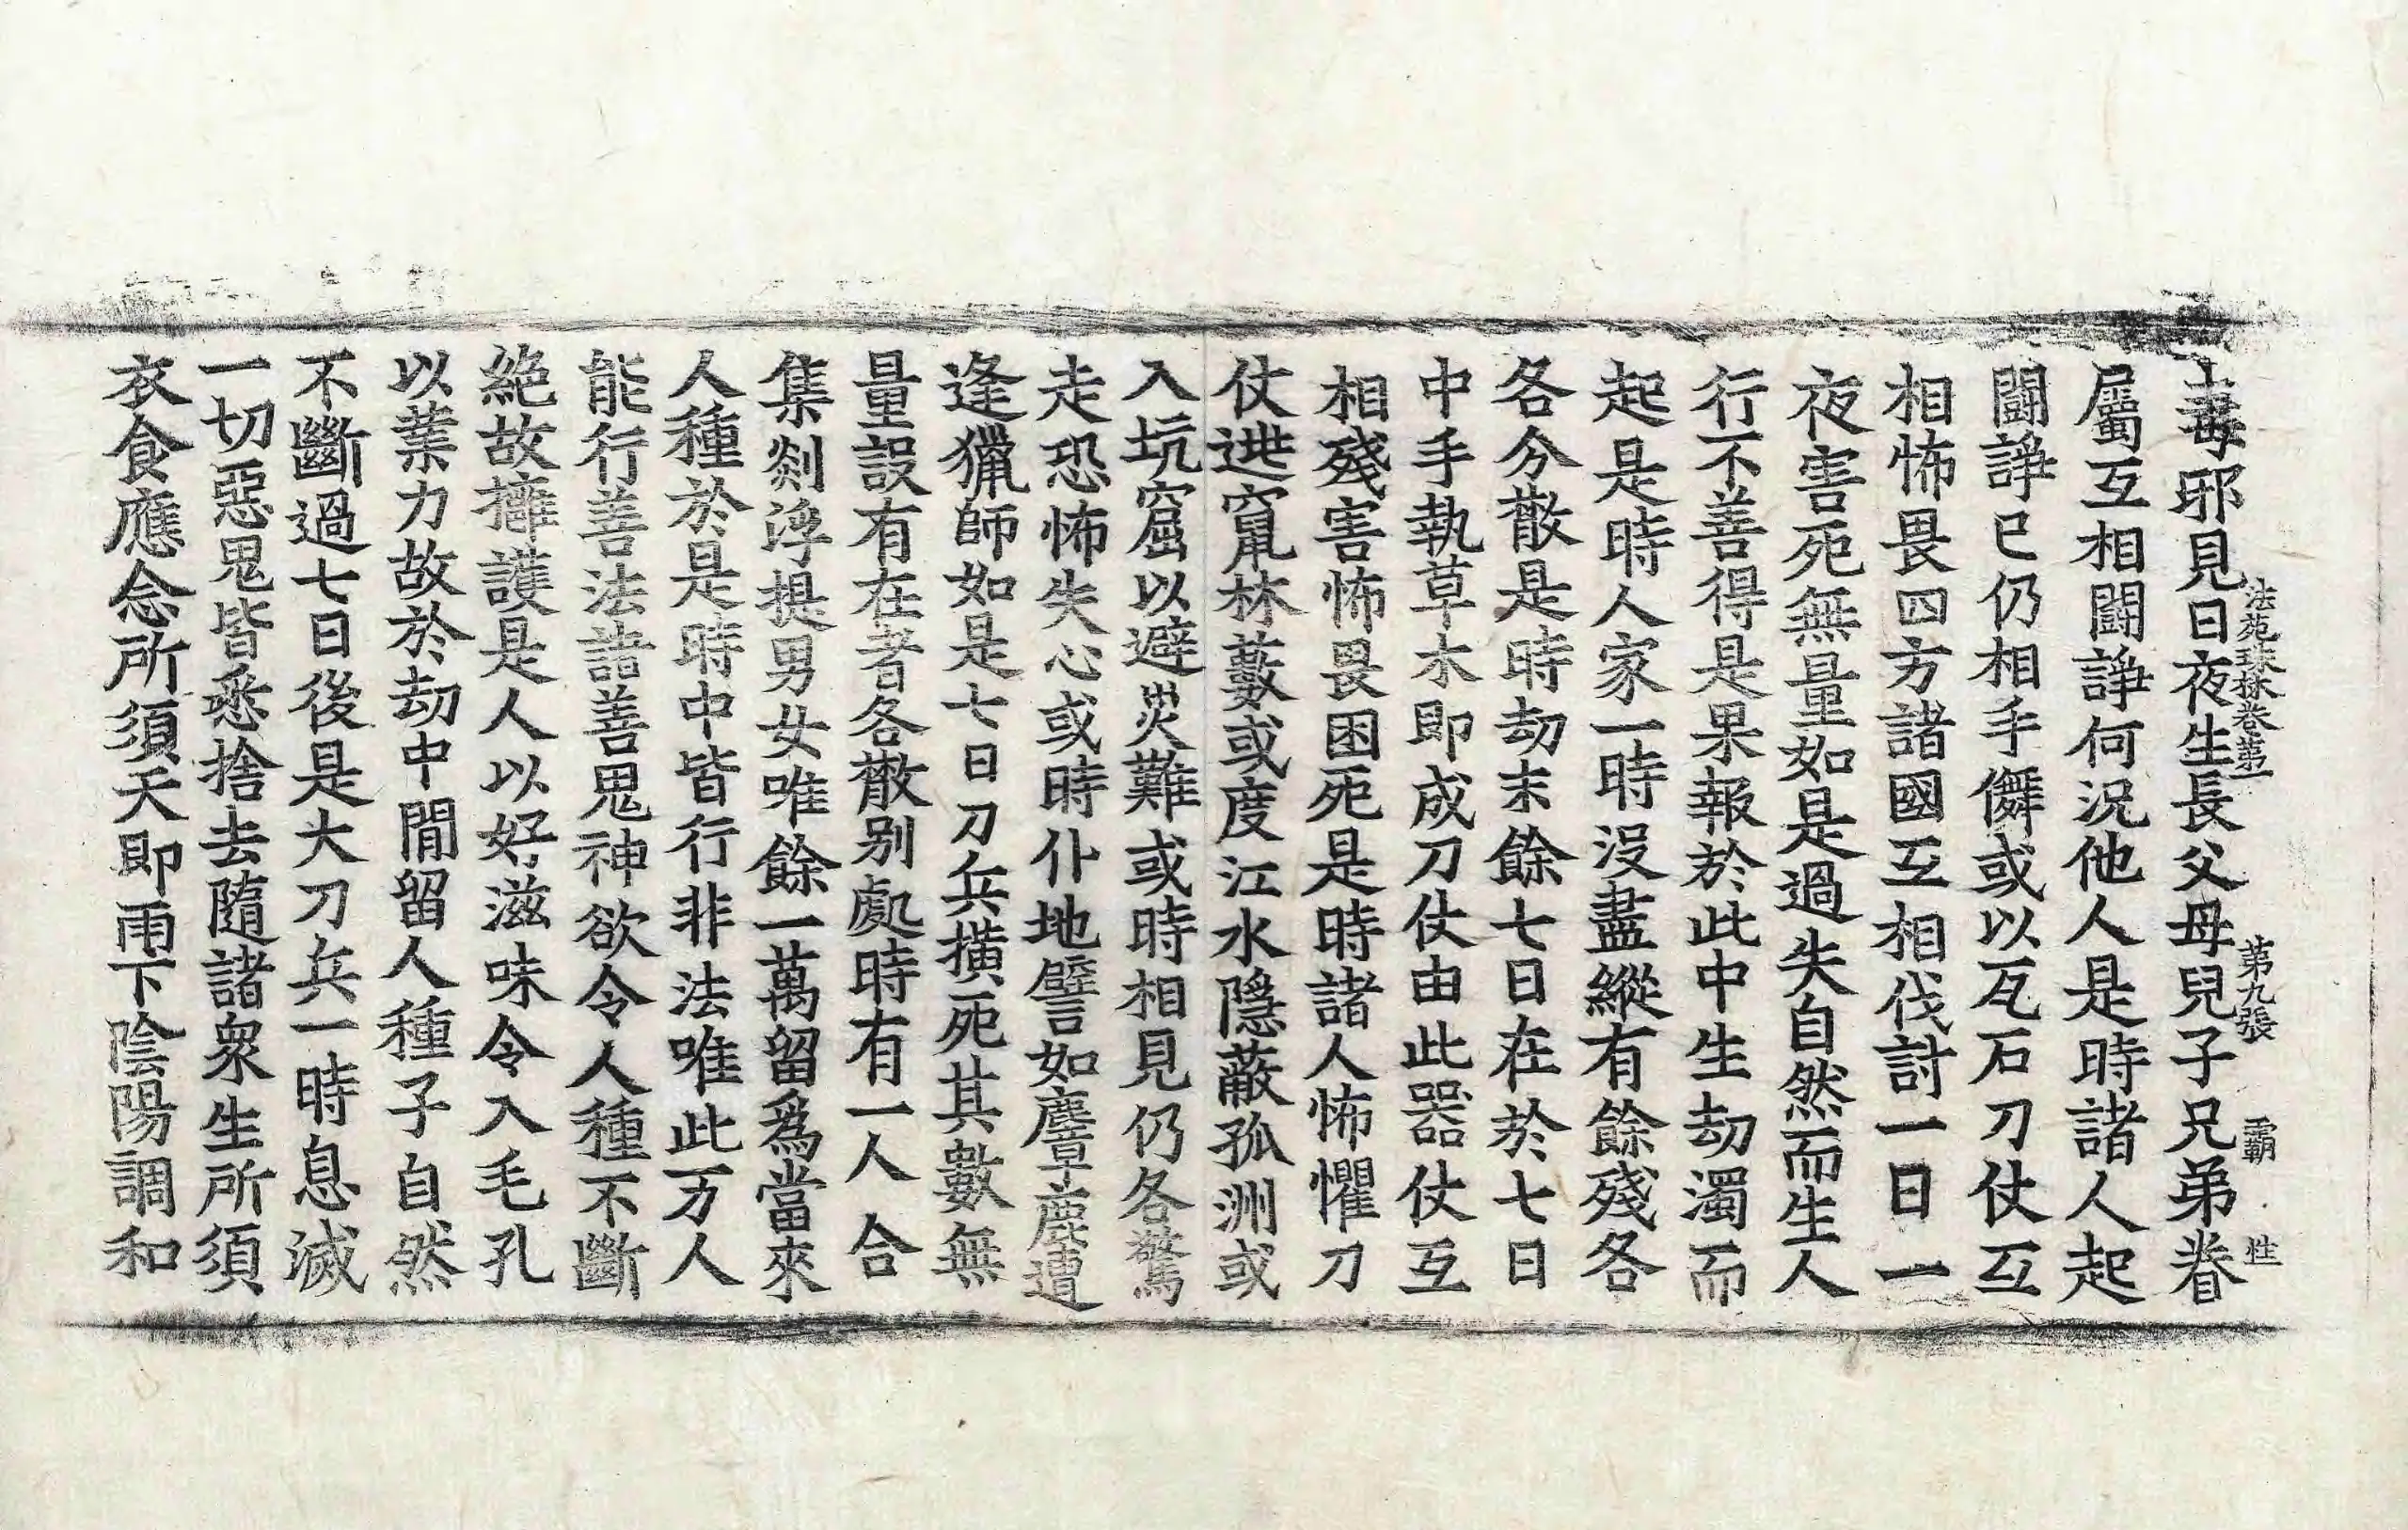 法苑珠林卷第一 第九張 霸 性
毒邪見日夜生長父母兒子兄弟眷
屬互相鬪諍何況他人是時諸人起
鬪諍已仍相手儛或以瓦石刀仗互
相怖畏四方諸國互相伐討一日一
夜害死無量如是過失自然而生人
行不善得是果報於此中生劫濁而
起是時人家一時沒盡縱有餘殘各
各分散是時劫末餘七日在於七日
中手執草木即成刀仗由此器仗互
相殘害怖畏困死是時諸人怖懼刀
仗逃竄林藪或度江水隱蔽孤洲或
入坑窟以避災難或時相見仍各驚
走恐怖失心或時仆地譬如麞鹿遭
逢獵師如是七日刀兵橫死其數無
量設有在者各散別處時有一人合
集剡浮提男女唯餘一萬留爲當來
人種於是時中皆行非法唯此万人
能行善法諸善鬼神欲令人種不斷
絕故擁護是人以好滋味令入毛孔
以業力故於劫中閒留人種子自然
不斷過七日後是大刀兵一時息滅
一切惡鬼皆悉捨去隨諸衆生所須
衣食應念所須天即雨下陰陽調和